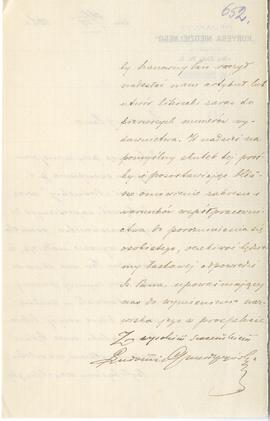 652.
by Szanowny Pan raczył
nadesłać nam artykuł lub
utwór literacki zaraz do
pierwszych numerów wy-
dawnictwa. W nadziei na
pomyślny skutek tej proś-
by i pozostawiając bliż-
sze omówienie zakresu i
warunków współpracowni-
ctwa do porozumienia się
osobistego, oczekiwać będziemy
łaskawej odpowiedzi
Sz. Pana, upoważniającej
nas do wymienienia naz-
wiska jego w prospekcie
Z wysokim szacunkiem